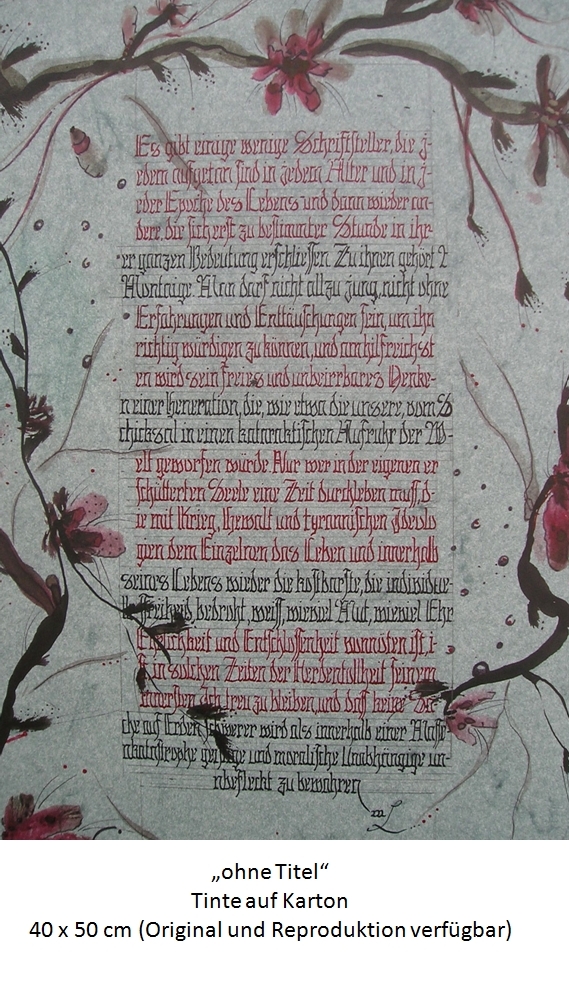 Es gibt einige wenige Schriftsteller, die j-
edem aufgetan sind in jedem Alter und in j-
eder Epoche des Lebens und dann wieder an-
dere, die sich erst zu bestimmter Stunde in ihr-
er ganzen Bedeutung erschliessen. Zu ihnen gehört
Montaige. Man darf nicht allzu jung, nicht ohne
Erfahrungen und Enttäuschungen sein, um ihn
richtig würdigen zu können, und am hilfreichst
en wird sein freies und unbeirrbares Denke-
n einer Generation, die, wie etwa die unsere, vom S
chicksal in einen kataraktischen Aufruhr der W-
elt geworfen würde. Nur wer in der eigenen er
schütterten Seele eine Zeit durchleben muss, d-
ie mit Krieg, Gewalt und tyrannischen Ideolo
gien dem Einzelnen das Leben und innerhalb
seines Lebens wieder die kostbarste, die individue-
lle Freiheid, bedroht, weiss, wieviel Mut, wieviel Ehr
und Entschlossenheit vonnöten ist, i-
st in solchen Zeiten der Herdentollheit seinem
innersten Ich treu zu bleiben, und dass keine Sa-
che auf Erden schwerer wird als innerhalb einer Masse
nkatastrophe geistige und moralische Unabhängige un-
nbefleckt zu bewahren
„ohne Titel“
Tinte auf Karton
40 x 50 cm (Original und Reproduktion verfügbar)